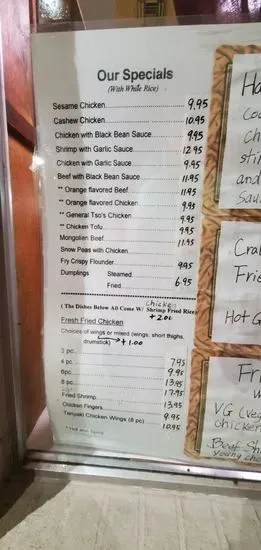 Our Specials
(With White Rice)
Sesame Chicken 9.95
Cashew Chicken 10.95
Chicken with Black Bean Sauce 9.95
Shrimp with Garlic Sauce 12.95
Chicken with Garlic Sauce 9.95
Beef with Black Bean Sauce 11.95
** Orange flavored Beef 11.95
** Orange flavored Chicken 9.95
** General Tso's Chicken 9.95
** Chicken Tofu 9.95
Mongolian Beef 11.95
Snow Peas with Chicken
Fry Crispy Flounder 9.95
Dumplings Steamed
Fried 6.95
Chicken
( The Dishes Below All Come W/ Shrimp Fried Rice)
+ 2.00
Fresh Fried Chicken
Choices of wings or mixed (wings, short thighs,
drumstick) + 1.00
3 pc
4 pc 7.95
6pc 9.95
8 pc 13.95
17.95
Fried Shrimp 13.95
Chicken Fingers 9.95
Teriyaki Chicken Wings (8 pc) 10.95
* Hot and Spicy
Ha
Sau
Crab
Frie
Hot G
Fri
VG (Ve
chicken
Beef Sh
young ch